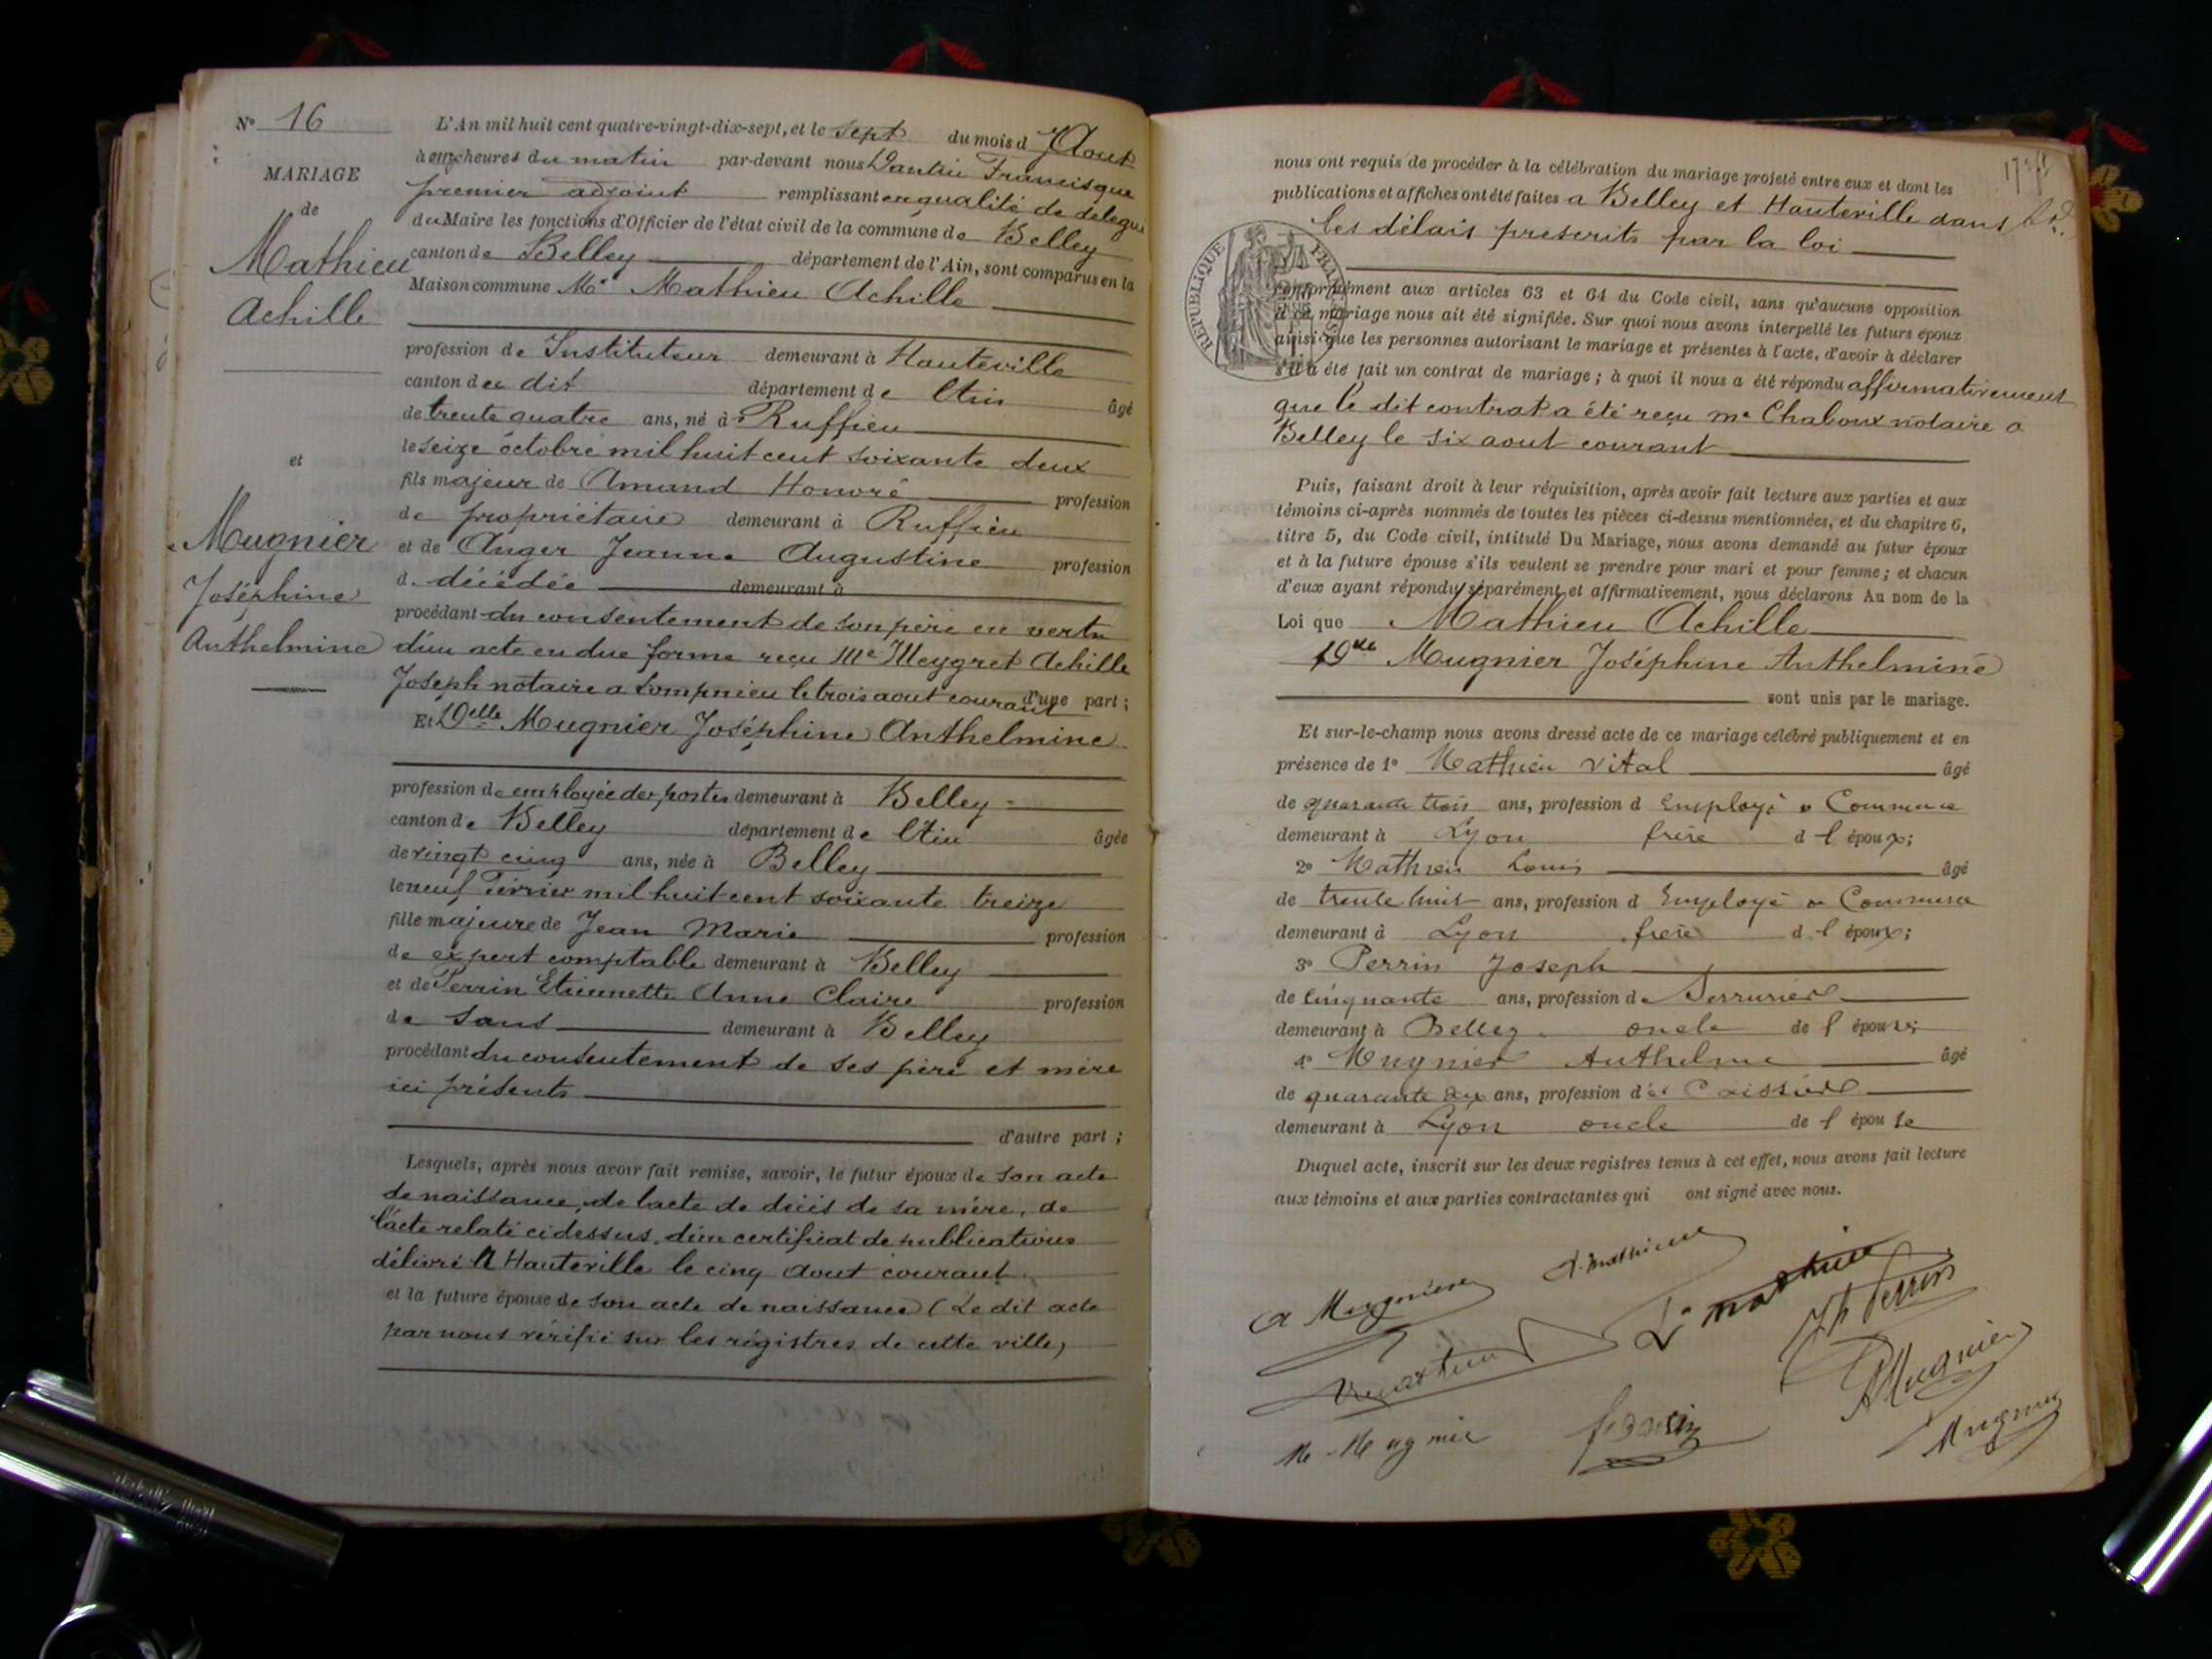 N° 16
MARIAGE
de
Mathieu
Achille
et
Mugnier
Joséphine
Anthelmine
L'An mil huit cent quatre-vingt-dix-sept, et le sept du mois d'Aout
à onze heures du matin par-devant nous Dantin Francisque
premier adjoint remplissant en qualité de délégué
du Maire les fonctions d'Officier de l'état civil de la commune de Belley
canton de Belley département de l'Ain, sont comparus en la
Maison commune Mr Mathieu Achille
profession de Instituteur demeurant à Hauteville
canton du dit département de l'Ain âgé
de trente quatre ans, né à Ruffieu
le seize octobre mil huit cent soixante deux
fils majeur de Amand Honoré profession
de propriétaire demeurant à Ruffieu
et de Anger Jeanne Augustine profession
d. décédée demeurant à
procédant du consentement de son père en vertu
d'un acte en due forme reçu Me Meygret Achille
Joseph notaire a Sompnieu le trois aout courant d'une part ;
Et Delle Mugnier Joséphine Anthelmine
profession de employée des postes demeurant à Belley
canton de Belley département de l'Ain âgée
de vingt cinq ans, née à Belley
le neuf Février mil huit cent soixante treize
fille majeure de Jean Marie profession
de expert comptable demeurant à Belley
et de Perrin Etiennette Anne Claire profession
de Sans demeurant à Belley
procédant du consentement de ses père et mère
ici présents
d'autre part ;
Lesquels, après nous avoir fait remise, savoir, le futur époux de son acte
de naissance, de l'acte de décès de sa mère, de
l'acte relaté ci dessus, d'un certificat de publications
délivré A Hauteville le cinq aout courant.
et la future épouse de son acte de naissance (Le dit acte
par nous vérifié sur les régistres de cette ville)
nous ont requis de procéder à la célébration du mariage projeté entre eux et dont les
publications et affiches ont été faites a Belley et Hauteville dans
les délais prescrits par la loi
REPUBLIQUE FRANÇAISE
conformément aux articles 63 et 64 du Code civil, sans qu'aucune opposition
à ce mariage nous ait été signifiée. Sur quoi nous avons interpellé les futurs époux
ainsi que les personnes autorisant le mariage et présentes à l'acte, d'avoir à déclarer
s'il a été fait un contrat de mariage ; à quoi il nous a été répondu affirmativement
que le dit contrat a été reçu me Chaboux notaire a
Belley le six aout courant
Puis, faisant droit à leur réquisition, après avoir fait lecture aux parties et aux
témoins ci-après nommés de toutes les pièces ci-dessus mentionnées, et du chapitre 6,
titre 5, du Code civil, intitulé Du Mariage, nous avons demandé au futur époux
et à la future épouse s'ils veulent se prendre pour mari et pour femme ; et chacun
d'eux ayant répondu séparément et affirmativement, nous déclarons Au nom de la
Loi que Mathieu Achille
Dlle Mugnier Joséphine Anthelmine
sont unis par le mariage.
Et sur-le-champ nous avons dressé acte de ce mariage célébré publiquement et en
présence de 1° Mathieu Vital âgé
de quarante trois ans, profession d Employé a Commerce
demeurant à Lyon frère d l époux ;
2° Mathieu Louis âgé
de trente huit ans, profession d Employé a Commerce
demeurant à Lyon frère d. l époux ;
3° Perrin Joseph
de cinquante ans, profession de Serrurier
demeurant à Belley. oncle de l épouse
4° Mugnier Anthelme âgé
de quarante ans, profession d Caissier
demeurant à Lyon oncle de l épouse
Duquel acte, inscrit sur les deux registres tenus à cet effet, nous avons fait lecture
aux témoins et aux parties contractantes qui ont signé avec nous.
A Mugnier
A. Mathieu
Ls Mathieu
Jh Perrin
V Mathieu
A Mugnier
M Mugnier
Mugnier